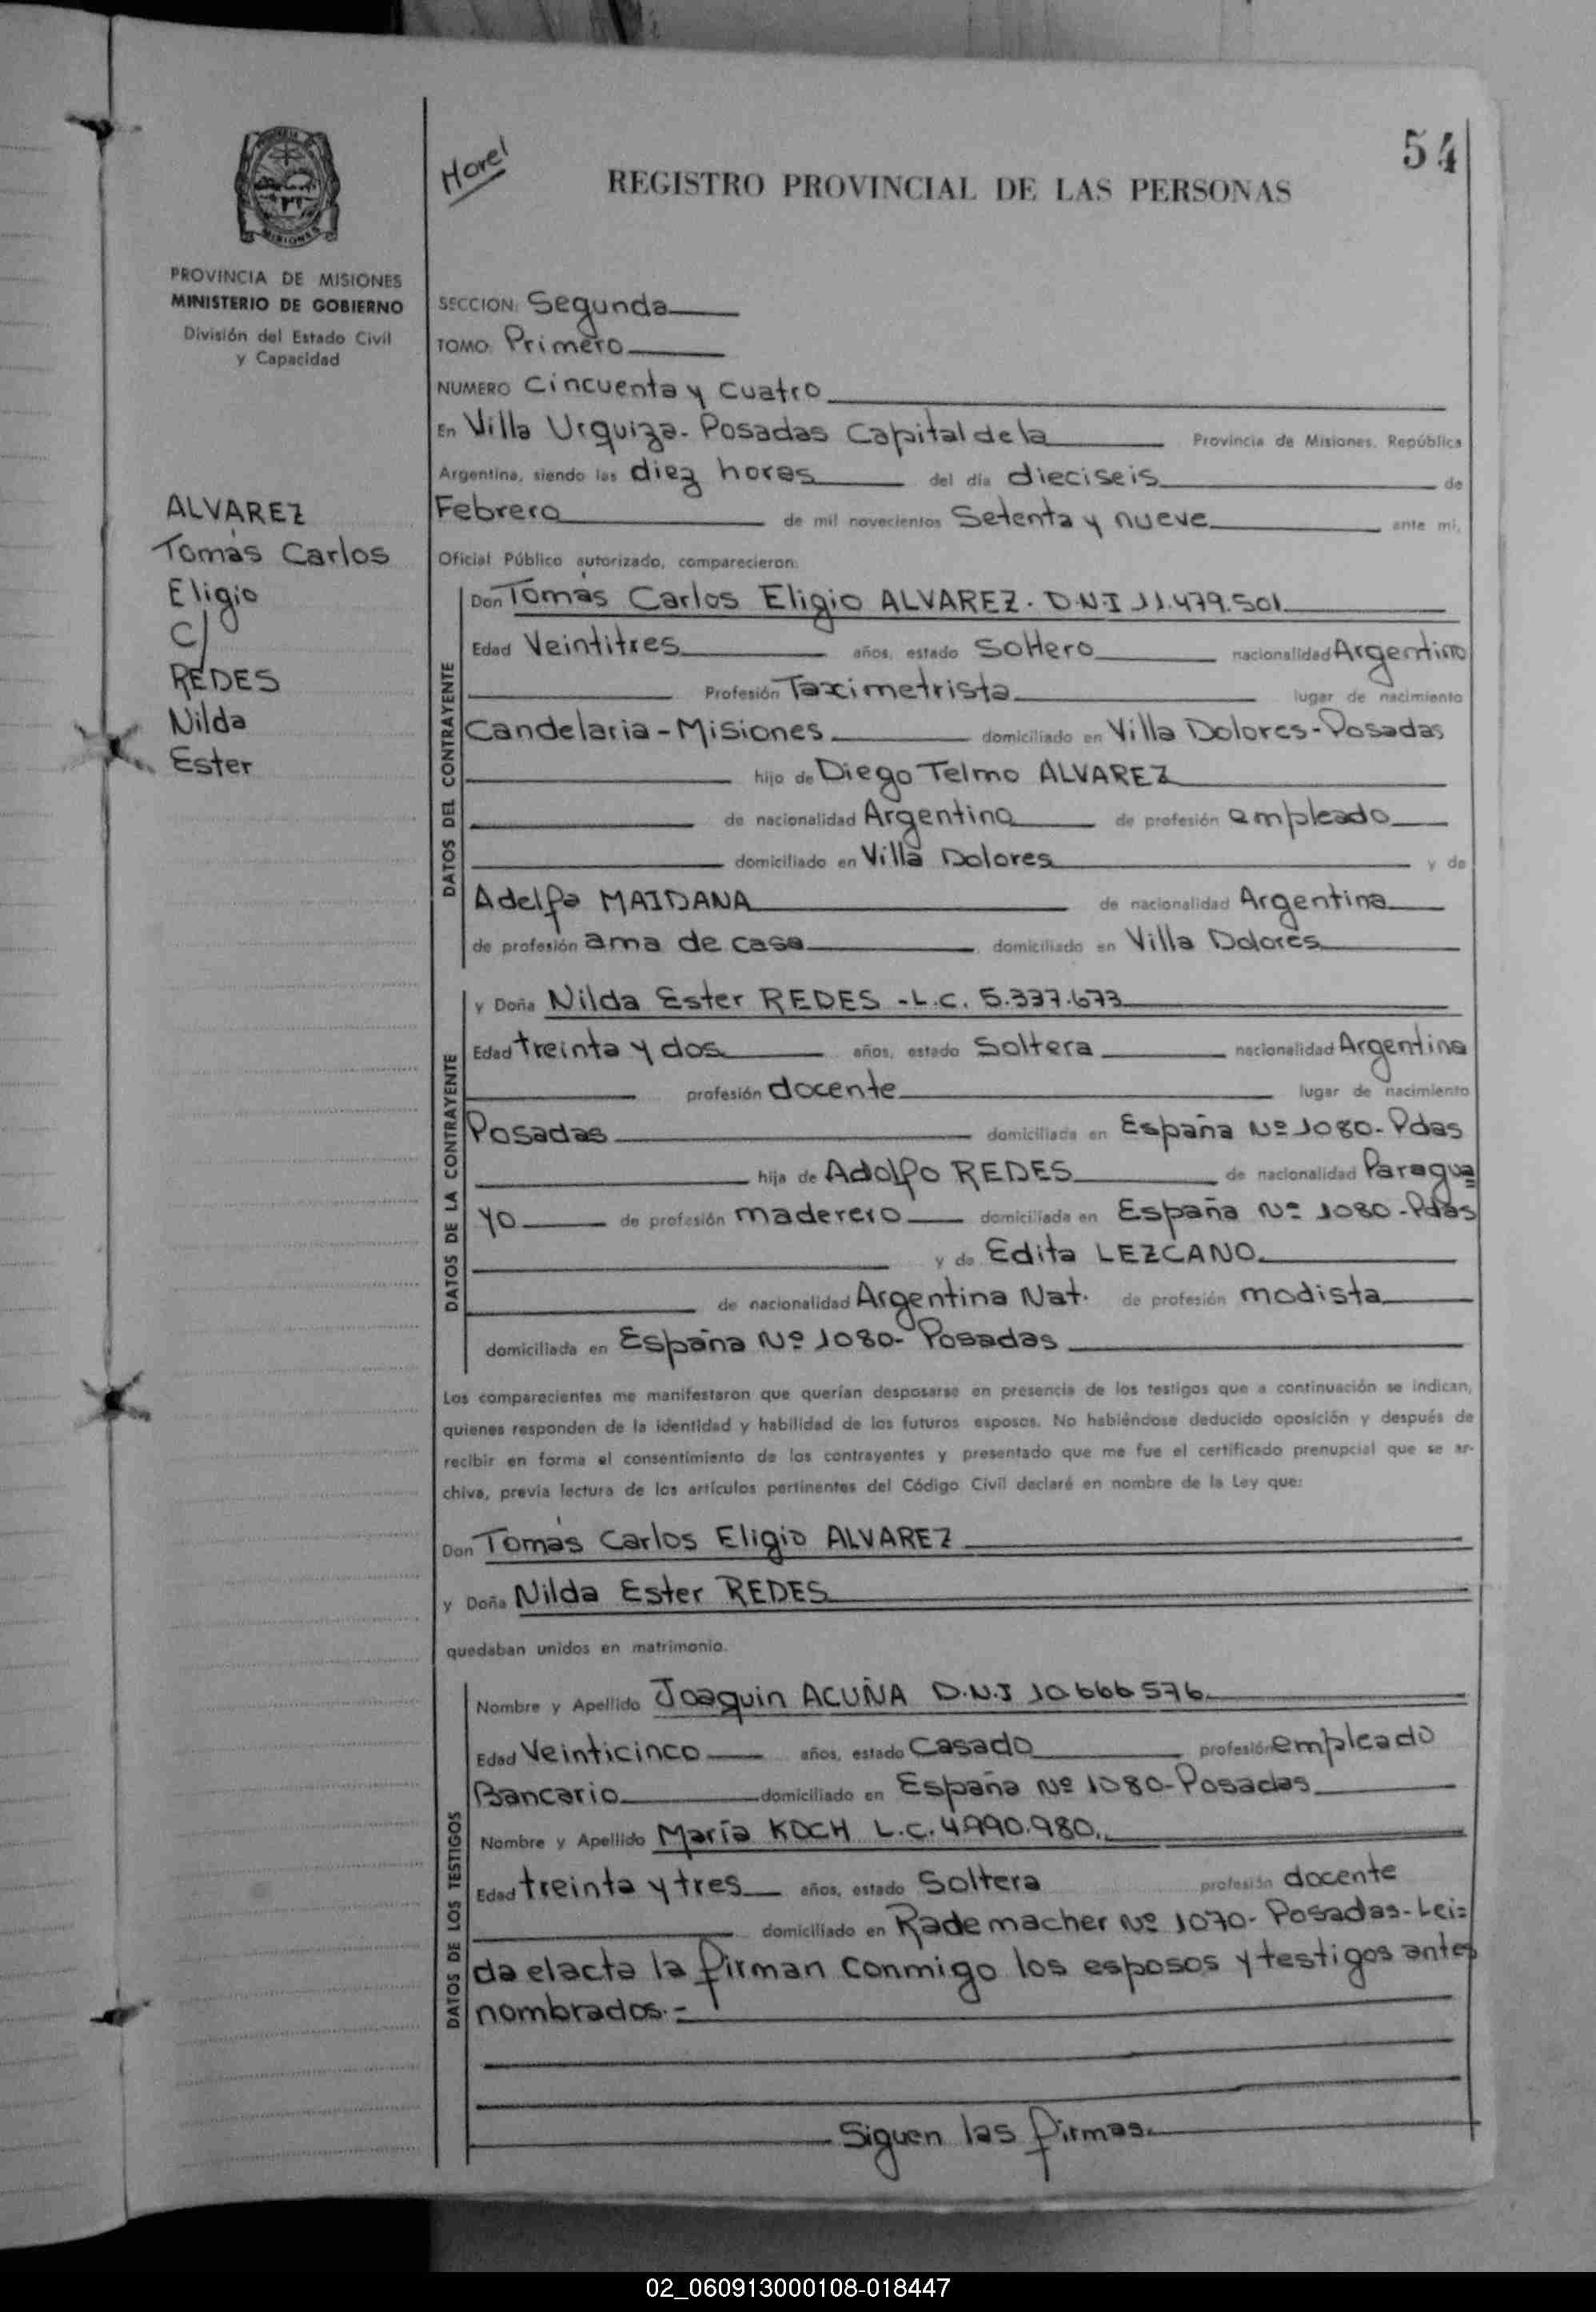 54
Horel
REGISTRO PROVINCIAL DE LAS PERSONAS
MISIONES
PROVINCIA DE MISIONES
MINISTERIO DE GOBIERNO
División del Estado Civil
y Capacidad
ALVAREZ
Tomás Carlos
Eligio
C/
REDES
Nilda
Ester
SECCION: Segunda
TOMO: Primero
NUMERO Cincuenta y Cuatro
En Villa Urquiza - Posadas Capital de la Provincia de Misiones, República
Argentina, siendo las diez horas del día dieciseis de
Febrero de mil novecientos Setenta y nueve ante mí,
Oficial Público autorizado, comparecieron:
DATOS DEL CONTRAYENTE
Don Tomás Carlos Eligio ALVAREZ. D.N.I 11.479.501
Edad Veintitres años, estado Soltero nacionalidad Argentino
Profesión Taximetrista lugar de nacimiento
Candelaria - Misiones domiciliado en Villa Dolores - Posadas
hijo de Diego Telmo ALVAREZ
de nacionalidad Argentino de profesión empleado
domiciliado en Villa Dolores y de
Adelfa MAIDANA de nacionalidad Argentina
de profesión ama de casa domiciliado en Villa Dolores
DATOS DE LA CONTRAYENTE
y Doña Nilda Ester REDES - L.C. 5.337.673
Edad treinta y dos años, estado Soltera nacionalidad Argentina
profesión docente lugar de nacimiento
Posadas domiciliada en España Nº 1080 - Pdas
hija de Adolfo REDES de nacionalidad Paragua
yo de profesión maderero domiciliada en España Nº 1080 - Pdas
y de Edita LEZCANO
de nacionalidad Argentina Nat. de profesión modista
domiciliada en España Nº 1080 - Posadas
Los comparecientes me manifestaron que querían desposarse en presencia de los testigos que a continuación se indican,
quienes responden de la identidad y habilidad de los futuros esposos. No habiéndose deducido oposición y después de
recibir en forma el consentimiento de los contrayentes y presentado que me fue el certificado prenupcial que se ar-
chiva, previa lectura de los artículos pertinentes del Código Civil declaré en nombre de la Ley que:
Don Tomás Carlos Eligio ALVAREZ
y Doña Nilda Ester REDES
quedaban unidos en matrimonio.
DATOS DE LOS TESTIGOS
Nombre y Apellido Joaquin ACUÑA D.N.I 10.666.576
Edad Veinticinco años, estado Casado profesión empleado
Bancario domiciliado en España Nº 1080 - Posadas
Nombre y Apellido María KOCH L.C. 4.990.980.
Edad treinta y tres años, estado Soltera profesión docente
domiciliado en Rademacher Nº 1070 - Posadas - Lei=
da el acta la firman conmigo los esposos y testigos antes
nombrados.=
Siguen las firmas.
02_060913000108-018447